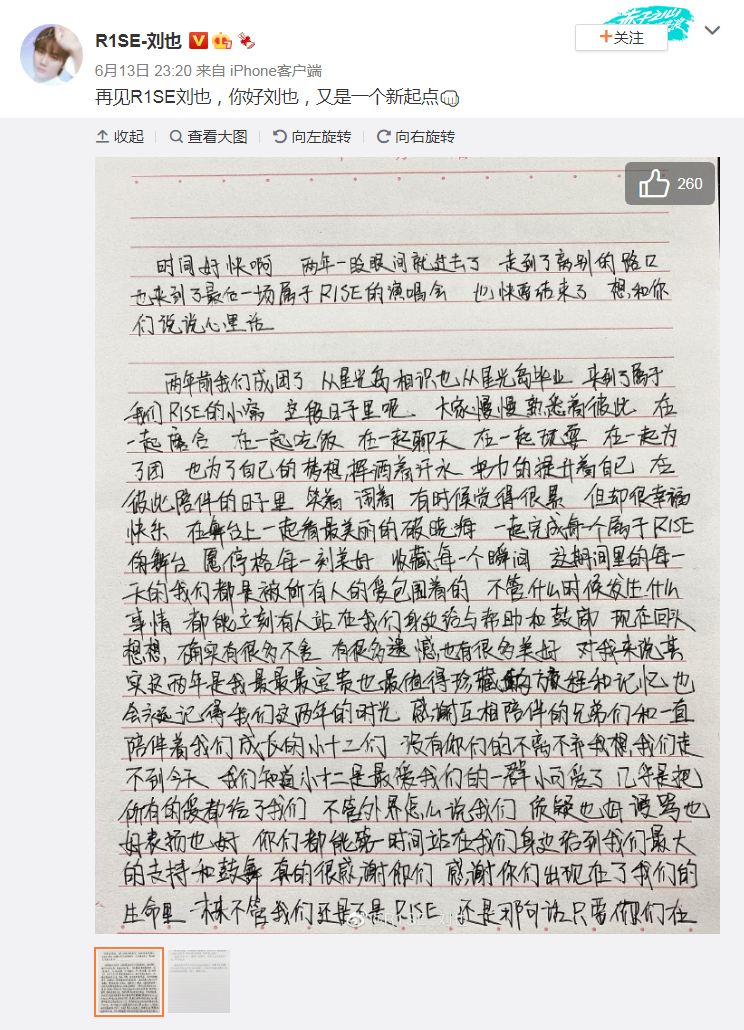 R1SE-刘也
+关注
6月13日 23:20 来自 iPhone客户端
再见R1SE刘也，你好刘也，又是一个新起点
收起
查看大图
向左旋转
向右旋转
260
时间好快啊 两年一眨眼间就过去了 走到了离别的路口
也来到了最后一场属于R1SE的演唱会 也快要结束了 想和你
们说说心里话
两年前我们成团了 从星光岛相识也从星光岛毕业 来到了属于
我们R1SE的小窝 空余日子里呢 大家慢慢熟悉着彼此 在
一起磨合 在一起吃饭 在一起聊天 在一起玩耍 在一起为
了团 也为了自己的梦想 挥洒着汗水 努力的提升着自己 在
彼此陪伴的日子里 笑着 闹着 有时候觉得很累 但却很幸福
快乐 在舞台上一起看最美丽的破晓海 一起完成每个属于R1SE
的舞台 愿停格每一刻美好 收藏每一个瞬间 这期间里的每一
天的我们都是被所有人的爱包围着的 不管什么时候发生什么
事情 都能立刻有人站在我们身边给与帮助和鼓励 现在回头
想想 确实有很多不舍 有很多遗憾也有很多美好 对我来说其
实这两年是我最最最宝贵也最值得珍藏的旅程和记忆 也
会永远记得我们这两年的时光 感谢互相陪伴的兄弟们和一直
陪伴着我们成长的小十二们 没有你们的不离不弃我想我们走
不到今天 我们知道小十二是最爱我们的一群小可爱了 几乎是把
所有的爱都给了我们 不管外界怎么说我们 质疑也好 谩骂也
好 表扬也好 你们都能第一时间站在我们身边给到我们最大
的支持和鼓舞 真的很感谢你们 感谢你们出现在了我们的
生命里 未来不管我们还是不是R1SE 还是那句话只要你们在